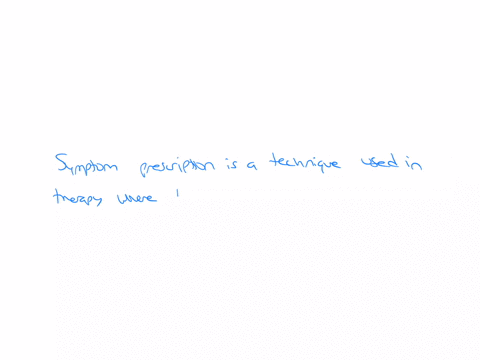 Symptom prescription is a technique used in
therapy where